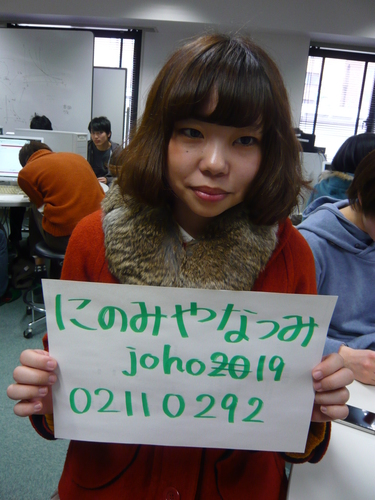 にのみやなつみ
joho2019
02110292